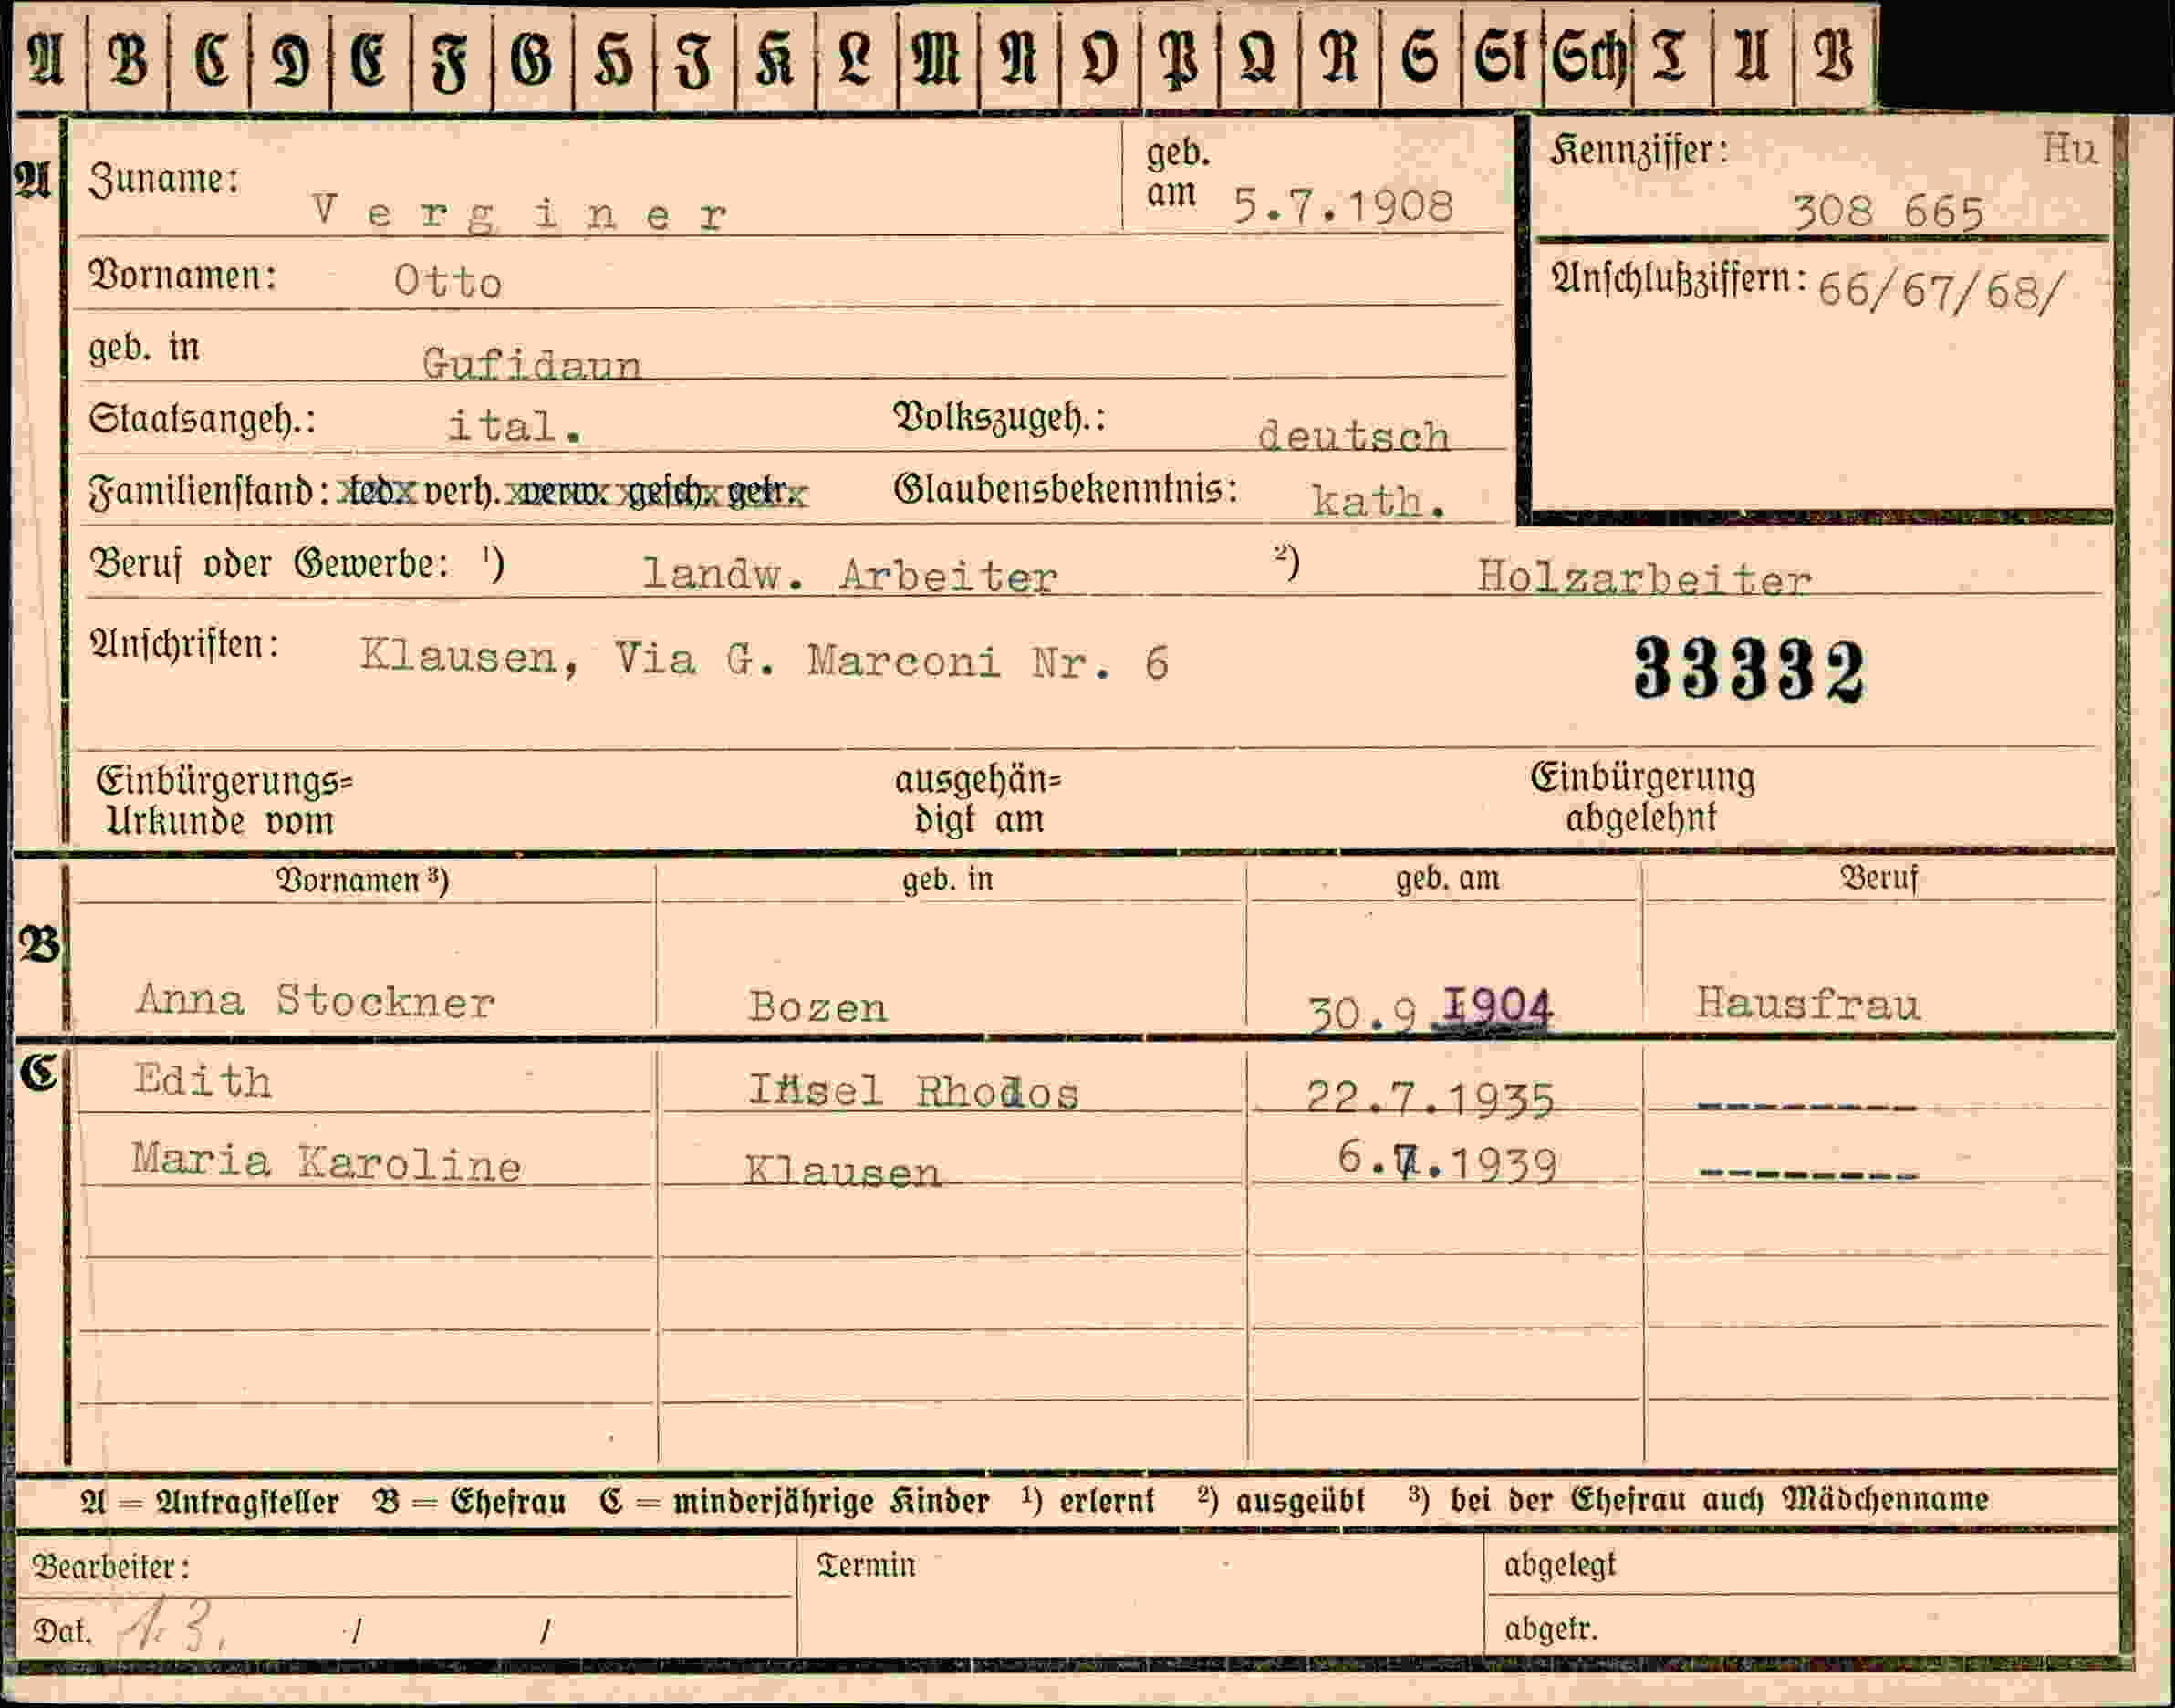 A B C D E F G H I K L M N O P Q R S St Sch T U V
A Zuname: Verginer geb. am 5.7.1908 Kennziffer: Hu
308 665
Vornamen: Otto Anschlußziffern: 66/67/68/
geb. in Gufidaun
Staatsangeh.: ital. Volkszugeh.: deutsch
Familienstand: led. verh. verw. gesch. getr. Glaubensbekenntnis: kath.
Beruf oder Gewerbe: ¹) landw. Arbeiter ²) Holzarbeiter
Anschriften: Klausen, Via G. Marconi Nr. 6 33332
Einbürgerungs= ausgehän= Einbürgerung
Urkunde vom digt am abgelehnt
Vornamen ³) geb. in geb. am Beruf
B
Anna Stockner Bozen 30.9 1904 Hausfrau
C Edith Insel Rhodos 22.7.1935 --------
Maria Karoline Klausen 6.7.1939 --------
A = Antragsteller B = Ehefrau C = minderjährige Kinder ¹) erlernt ²) ausgeübt ³) bei der Ehefrau auch Mädchenname
Bearbeiter: Termin abgelegt
Dat. 1. 3. / / abgetr.